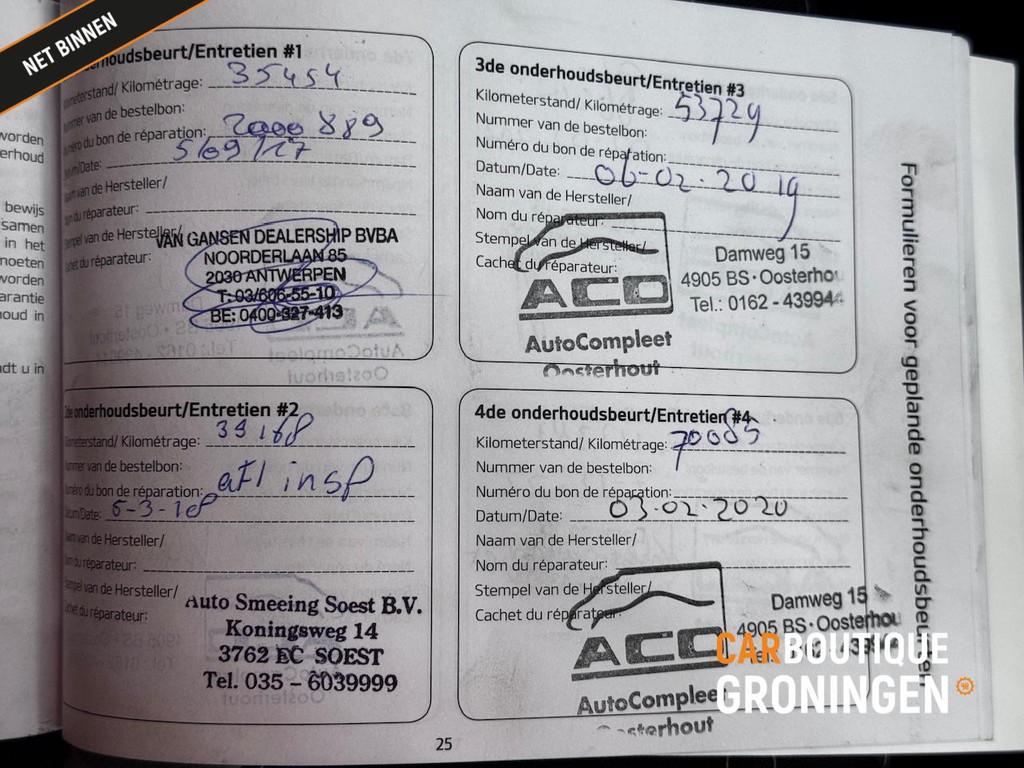 NET BINNEN
worden
erhoud
bewijs
samen
in het
moeten
worden
arantie
houd in
dt u in
houdsbeurt/Entretien #1
Kilometerstand/ Kilométrage: 35454
Nummer van de bestelbon:
Numéro du bon de réparation: 2000 889
Datum/Date: 5/09/17
Naam van de Hersteller/
Nom du réparateur:
Stempel van de Hersteller/
Cachet du réparateur:
VAN GANSEN DEALERSHIP BVBA
NOORDERLAAN 85
2030 ANTWERPEN
T: 03/606-55-10
BE: 0400-327-413
2de onderhoudsbeurt/Entretien #2
Kilometerstand/ Kilométrage: 39168
Nummer van de bestelbon:
Numéro du bon de réparation: afl insp
Datum/Date: 6-3-18
Naam van de Hersteller/
Nom du réparateur:
Stempel van de Hersteller/
Cachet du réparateur:
Auto Smeeing Soest B.V.
Koningsweg 14
3762 EC SOEST
Tel. 035 - 6039999
3de onderhoudsbeurt/Entretien #3
Kilometerstand/ Kilométrage: 53729
Nummer van de bestelbon:
Numéro du bon de réparation:
Datum/Date: 06-02-2019
Naam van de Hersteller/
Nom du réparateur:
Stempel van de Hersteller/
Cachet du réparateur:
ACO
AutoCompleet
Oosterhout
Damweg 15
4905 BS · Oosterhou
Tel.: 0162 - 439944
4de onderhoudsbeurt/Entretien #4
Kilometerstand/ Kilométrage: 70085
Nummer van de bestelbon:
Numéro du bon de réparation:
Datum/Date: 03-02-2020
Naam van de Hersteller/
Nom du réparateur:
Stempel van de Hersteller/
Cachet du réparateur:
ACO
AutoCompleet
Oosterhout
Damweg 15
4905 BS · Oosterhou
Formulieren voor geplande onderhoudsbeurten
CARBOUTIQUE
GRONINGEN
25